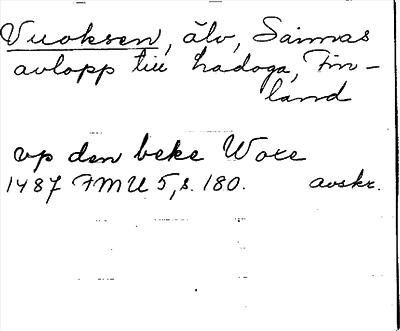 Vuoksen, älv, Saimas
avlopp till Ladoga, Fin-
land
vp den beke Woxe
1487 FMU 5, s. 180. avskr.